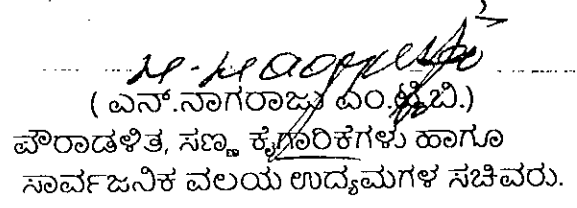 (ಎನ್.ನಾಗರಾಜು ಎಂ.ಟಿ.ಬಿ.)
ಪೌರಾಡಳಿತ, ಸಣ್ಣ ಕೈಗಾರಿಕೆಗಳು ಹಾಗೂ
ಸಾರ್ವಜನಿಕ ವಲಯ ಉದ್ಯಮಗಳ ಸಚಿವರು.